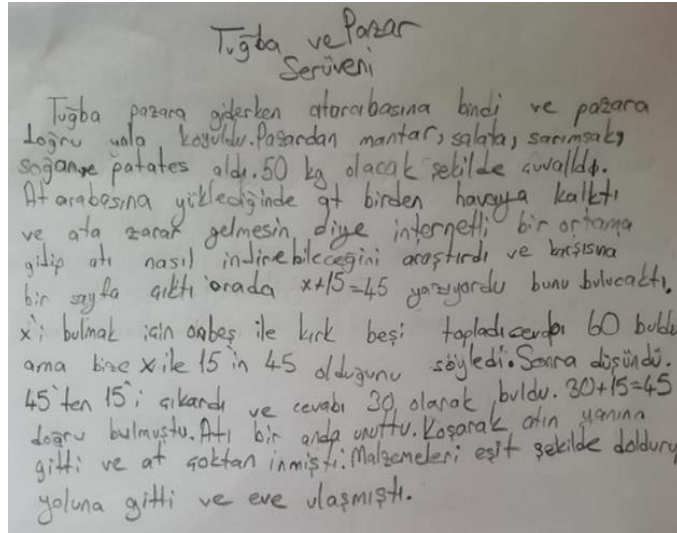 Tuğba ve Pazar
Serüveni
Tuğba pazara giderken atarabasına bindi ve pazara
doğru yola koyuldu. Pazardan mantar, salata, sarımsak,
soğan ve patates aldı. 50 kg olacak şekilde çuvalldı.
At arabasına yüklediğinde at birden havaya kalktı
ve ata zarar gelmesin diye internetli bir ortama
gidip atı nasıl indirebileceğini araştırdı ve karşısına
bir sayfa çıktı orada x+15=45 yazıyordu bunu bulucaktı.
x'i bulmak için onbeş ile kırk beşi topladı cevabı 60 buldu
ama bize x ile 15'in 45 olduğunu söyledi. Sonra düşündü.
45'ten 15'i çıkardı ve cevabı 30 olarak buldu. 30+15=45
doğru bulmuştu. Atı bir anda unuttu. Koşarak atın yanına
gitti ve at çoktan inmişti. Malzemeleri eşit şekilde doldury
yoluna gitti ve eve ulaşmıştı.